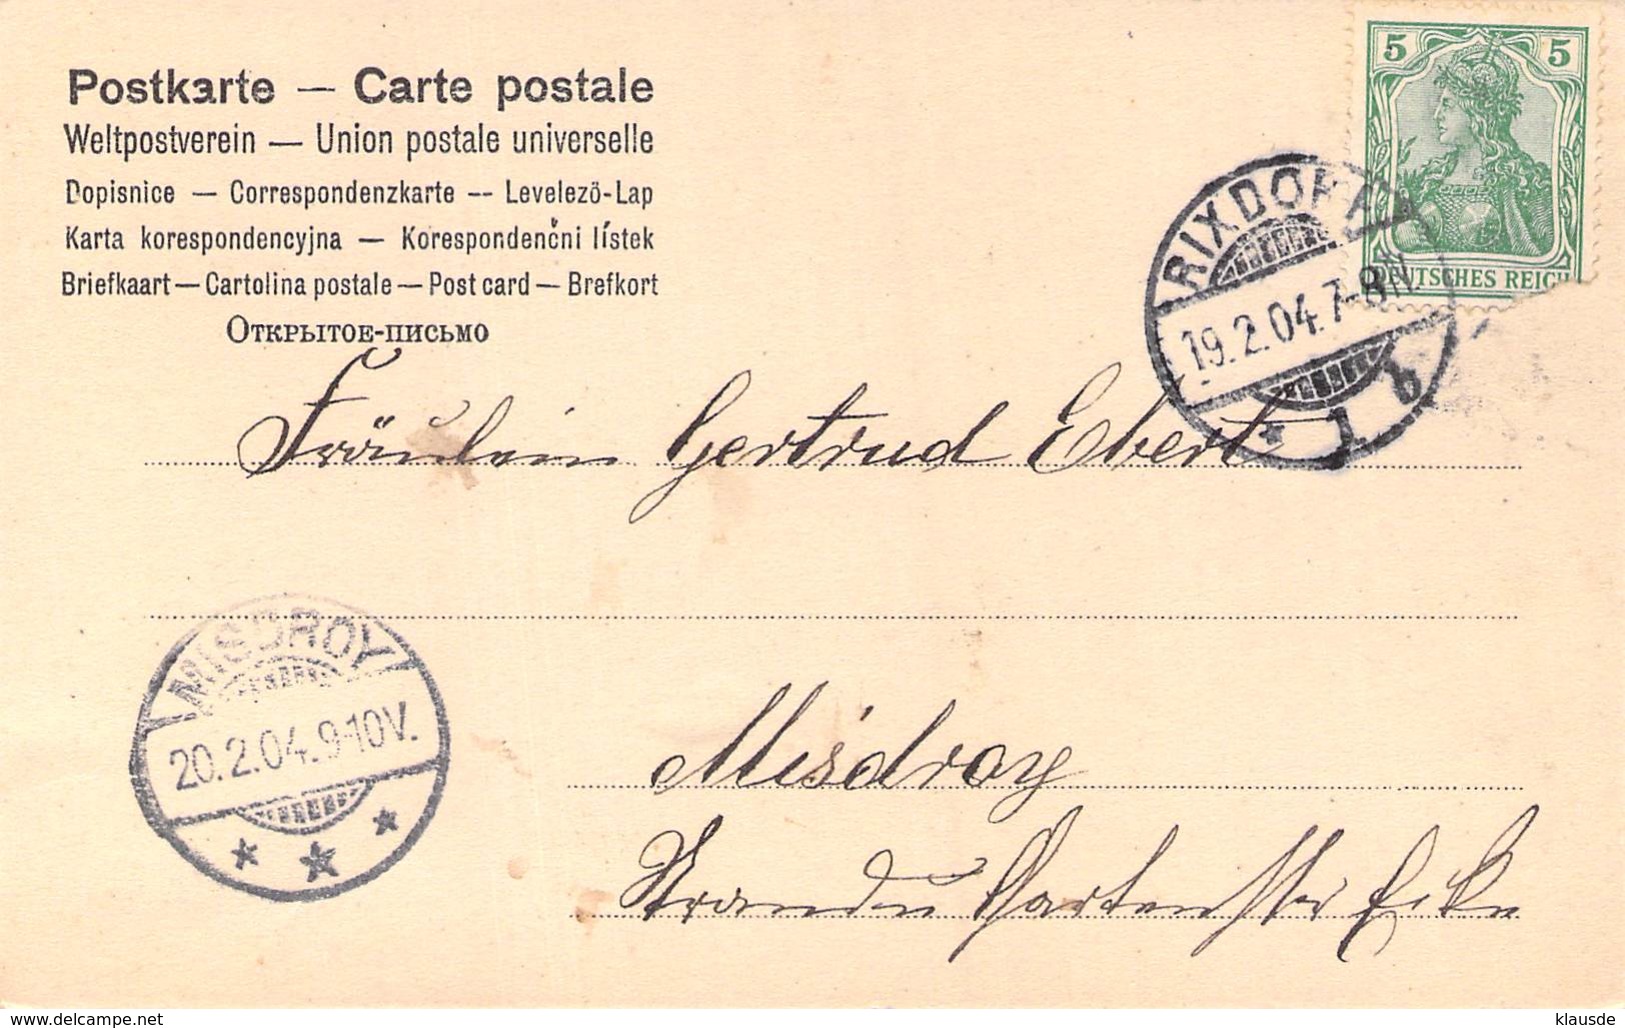 Postkarte — Carte postale
Weltpostverein — Union postale universelle
Dopisnice — Correspondenzkarte -- Levelező-Lap
Karta korespondencyjna — Korespondenčni lístek
Briefkaart — Cartolina postale — Post card — Brefkort
Открытое-письмо
5 5
DEUTSCHES REICH
RIXDORF
19.2.04.7-8N.
* 1 b
Fräulein Gertrud Ebert
MISDROY
20.2.04.9-10V.
* * *
Misdroy
Strand u Gartenstr Ecke
klausde